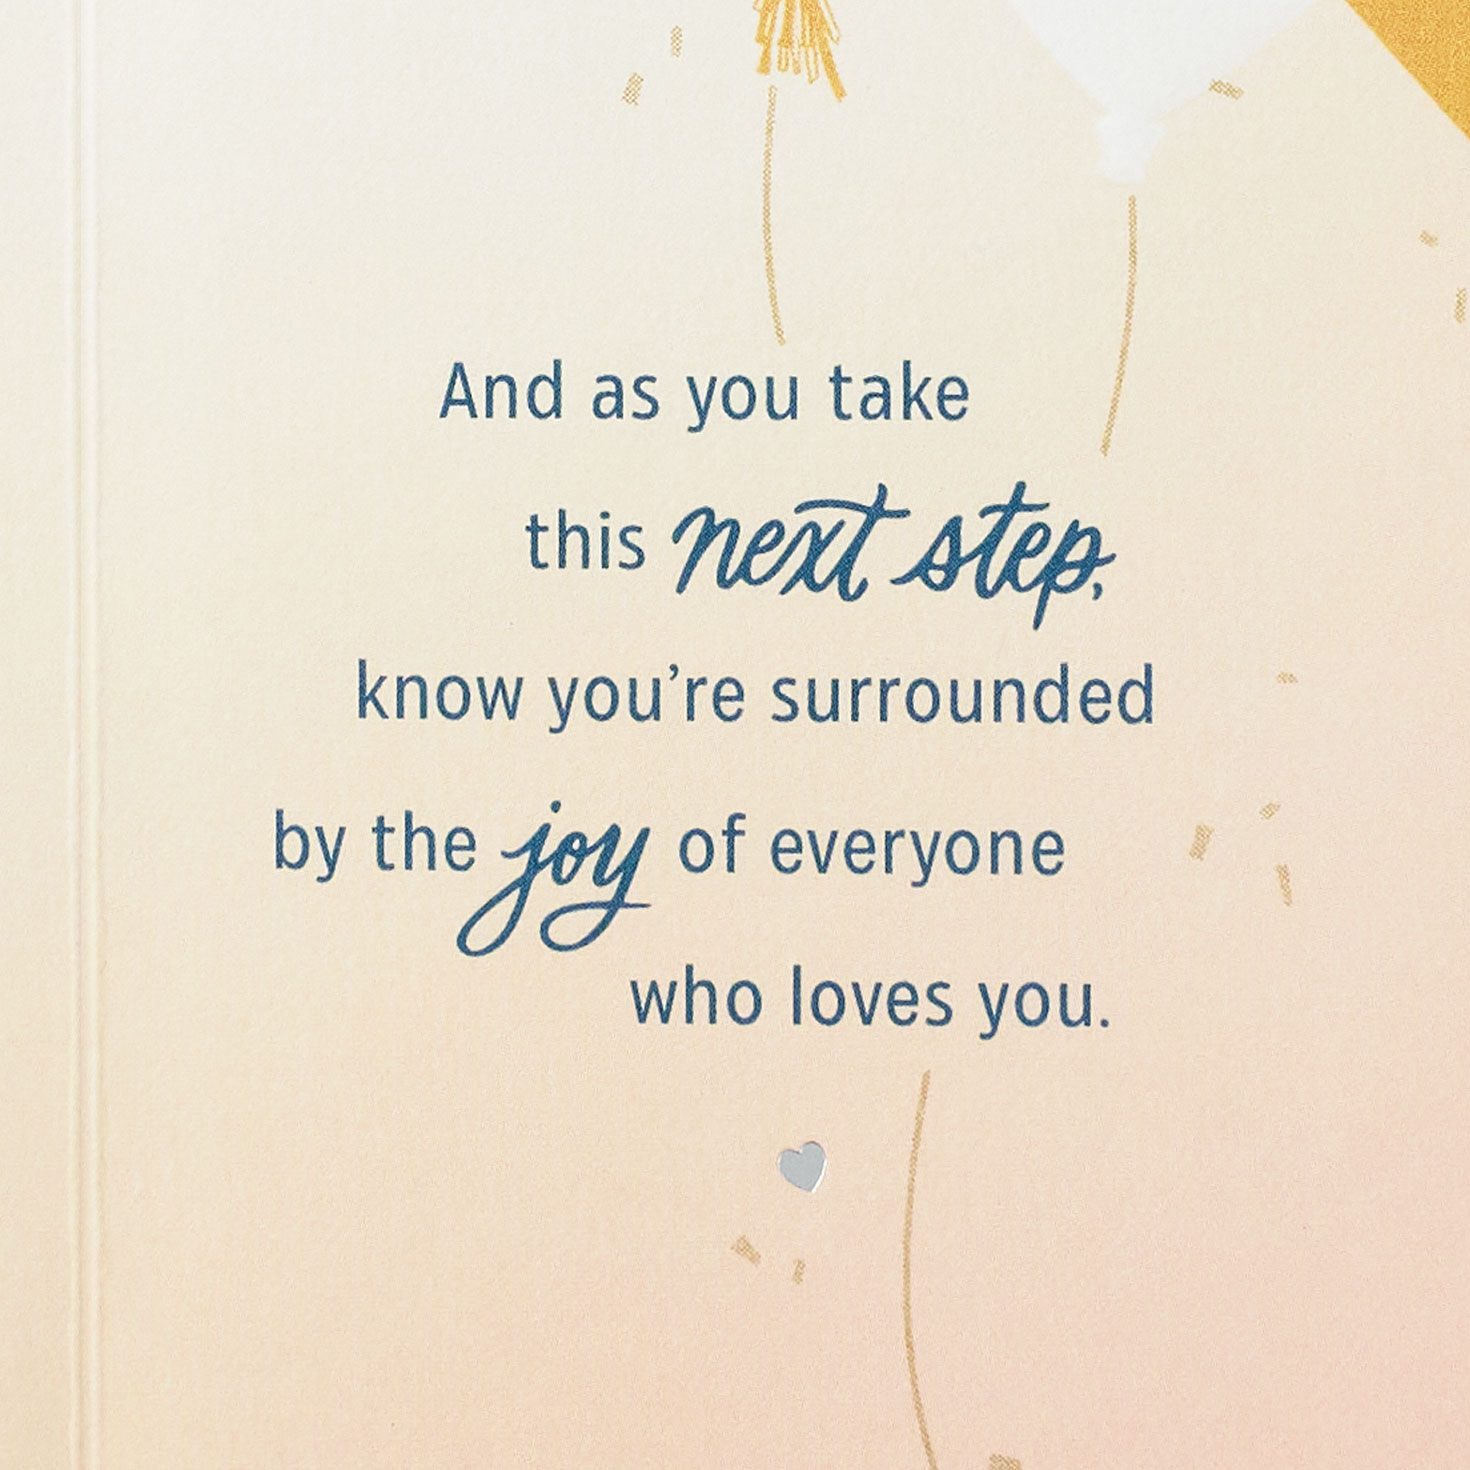 And as you take
this next step,
know you're surrounded
by the joy of everyone
who loves you.